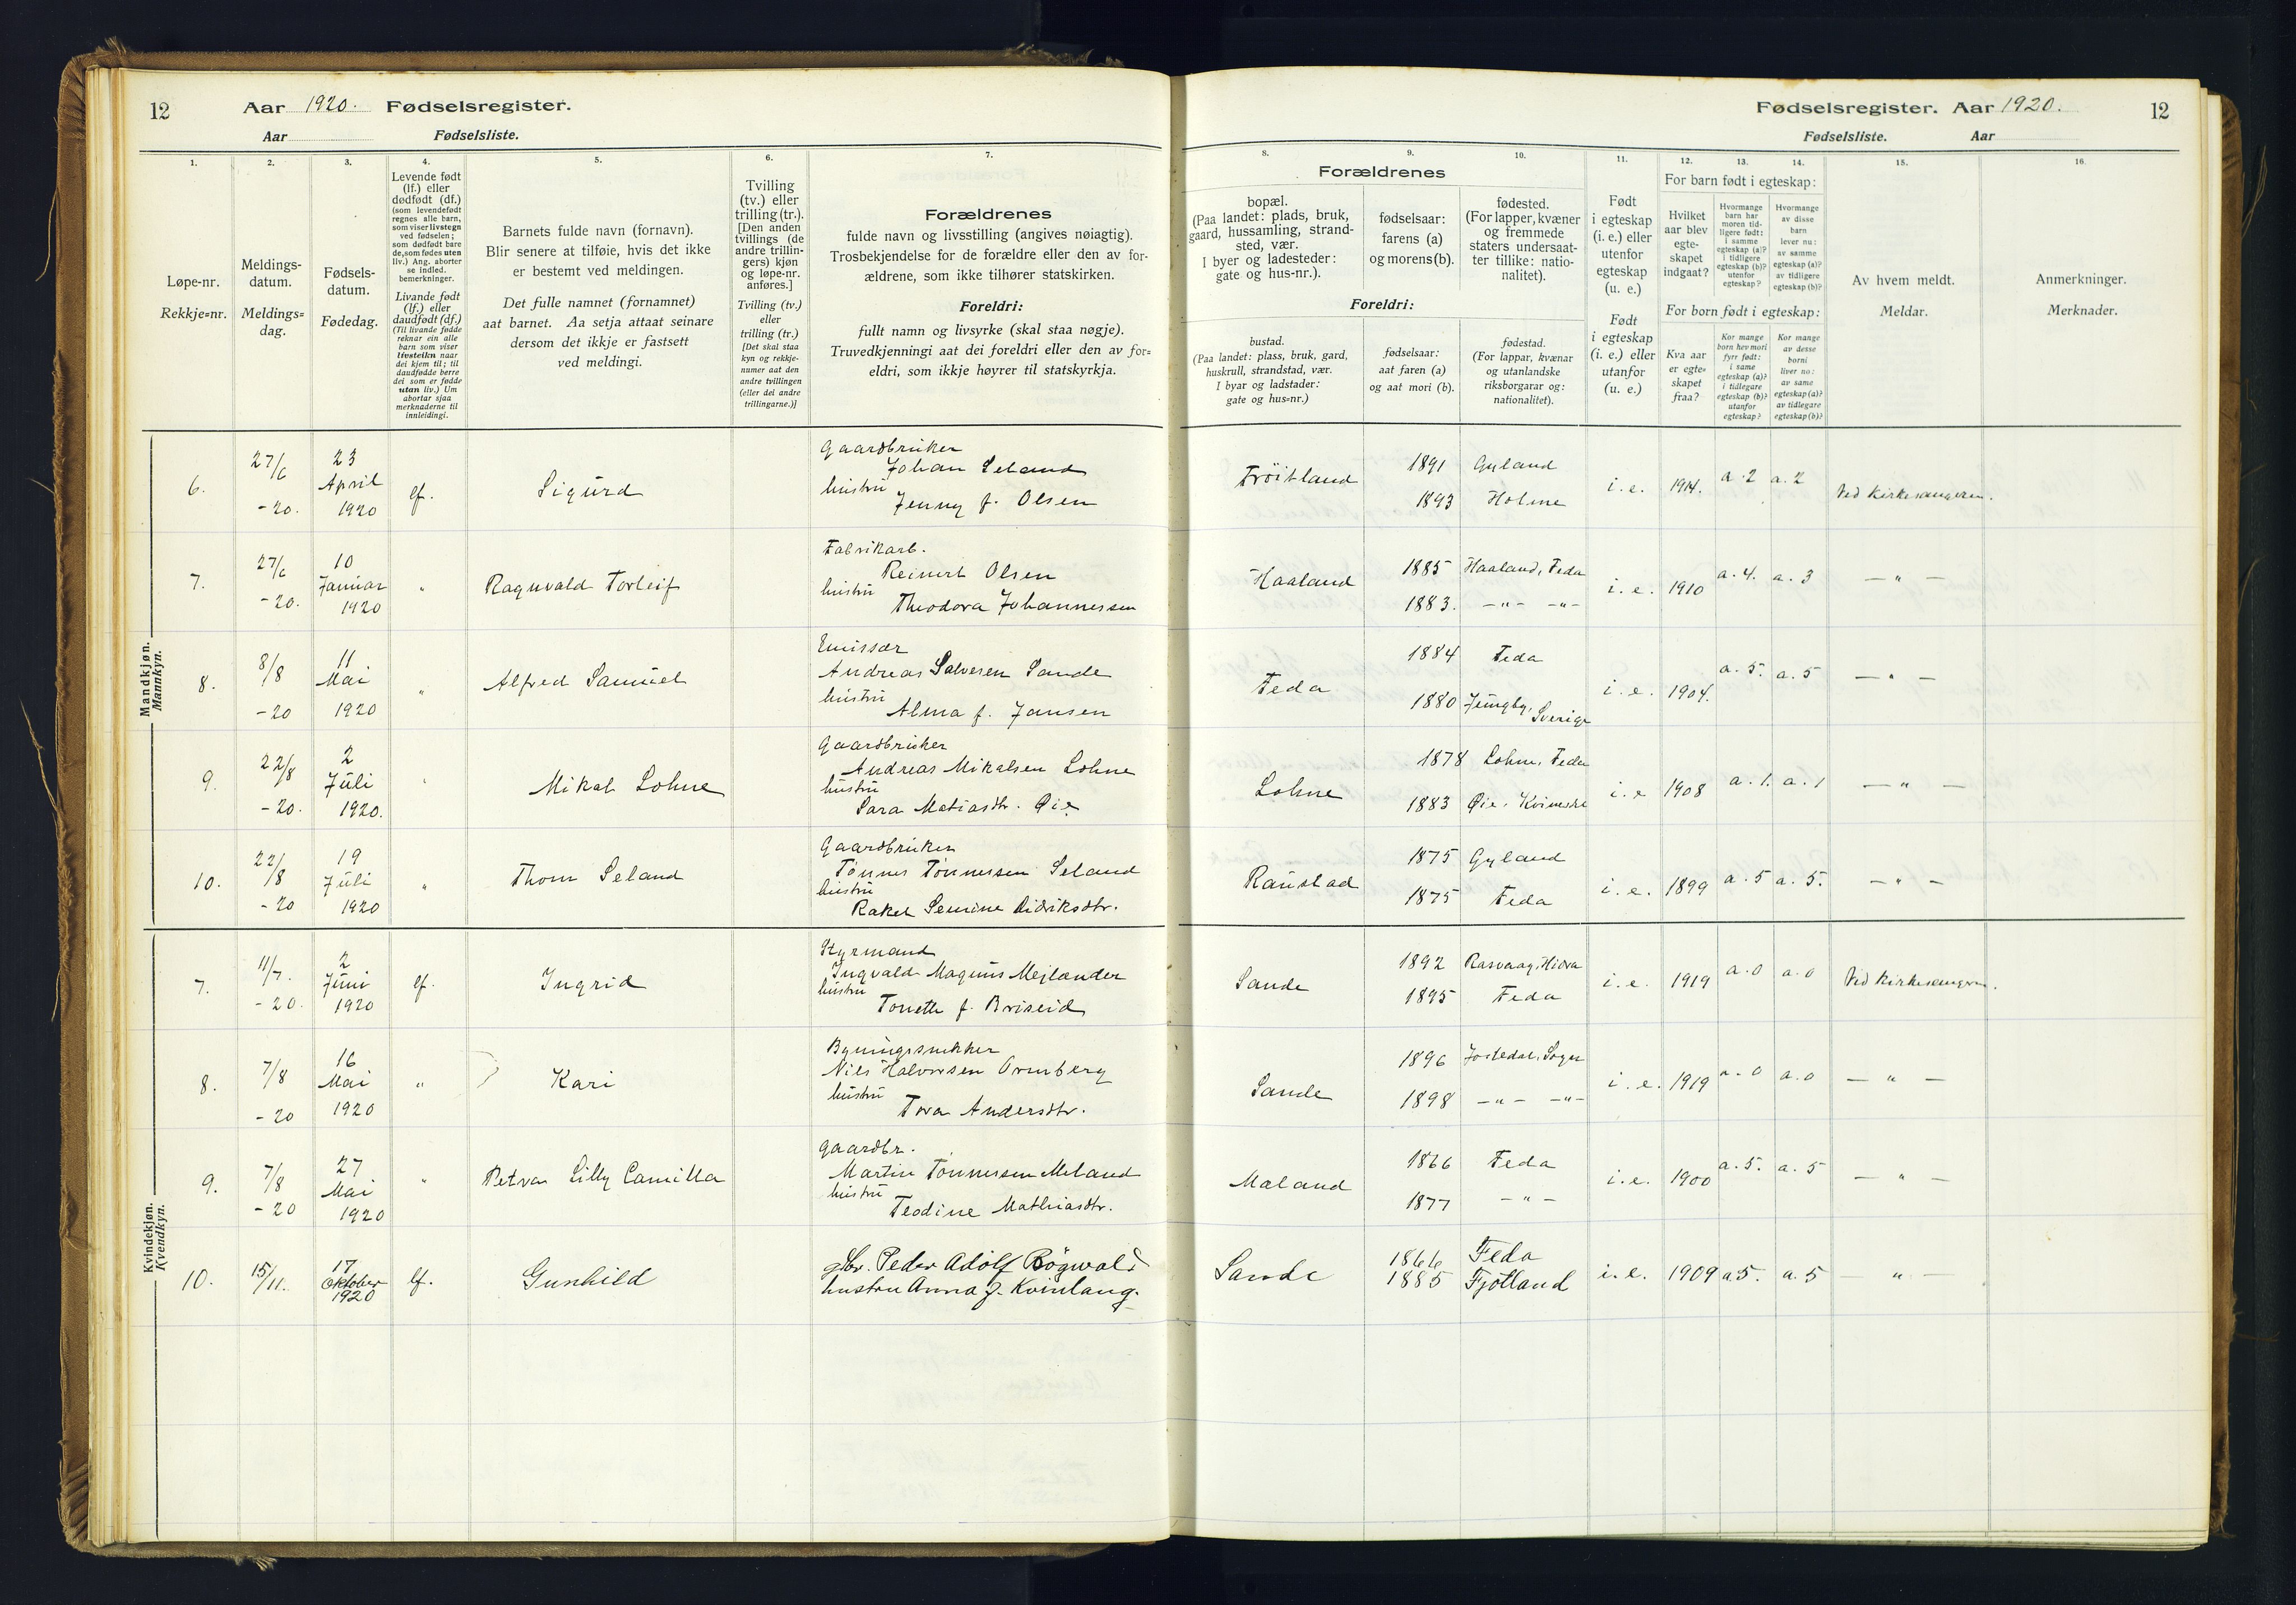 12 Aar 1920. Fødselsregister.
Aar Fødselsliste.
Fødselsregister. Aar 1920. 12
Fødselsliste. Aar
1.
Løpe-nr.
Rekkje=nr.
2.
Meldings-
datum.
Meldings=
dag.
3.
Fødsels-
datum.
Fødedag.
4.
Levende født
(lf.) eller
dødfødt (df.)
(som levendefødt
regnes alle barn,
som viser livstegn
ved fødselen;
som dødfødt bare
de, som fødes uten
liv.) Ang. aborter
se indled.
bemerkninger.
Livande født
(lf.) eller
daudfødt (df.)
(Til livande fødde
reknar ein alle
barn som viser
livsteikn naar
dei kjem til; til
daudfødde berre
dei som er fødde
utan liv.) Um
abortar sjaa
merknaderne til
innleidingi.
5.
Barnets fulde navn (fornavn).
Blir senere at tilføie, hvis det ikke
er bestemt ved meldingen.
Det fulle namnet (fornamnet)
aat barnet. Aa setja attaat seinare
dersom det ikkje er fastsett
ved meldingi.
6.
Tvilling
(tv.) eller
trilling (tr.).
[Den anden
tvillings (de
andre trillin-
gers) kjøn
og løpe-nr.
anføres.]
Tvilling (tv.)
eller
trilling (tr.)
[Det skal staa
kyn og rekkje-
numer aat den
andre tvillingen
(eller dei andre
trillingarne.)]
7.
Forældrenes
fulde navn og livsstilling (angives nøiagtig).
Trosbekjendelse for de forældre eller den av for-
ældrene, som ikke tilhører statskirken.
Foreldri:
fullt namn og livsyrke (skal staa nøgje).
Truvedkjenningi aat dei foreldri eller den av for=
eldri, som ikkje høyrer til statskyrkja.
Forældrenes
8.
bopæl.
(Paa landet: plads, bruk,
gaard, hussamling, strand-
sted, vær.
I byer og ladesteder:
gate og hus-nr.).
9.
fødselsaar:
farens (a)
og morens (b).
10.
fødested.
(For lapper, kvæner
og fremmede
staters undersaat-
ter tillike: natio-
nalitet).
Foreldri:
bustad.
(Paa landet: plass, bruk, gard,
huskrull, strandstad, vær.
I byar og ladstader:
gate og hus=nr.)
fødselsaar:
aat faren (a)
og aat mori (b).
fødestad.
(For lappar, kvænar
og utanlandske
riksborgarar og:
nationalitet).
11.
Født
i egteskap
(i. e.) eller
utenfor
egteskap
(u. e.)
Født
i egteskap
(i. e.) eller
utanfor
egteskap
(u. e.)
For barn født i egteskap:
12.
Hvilket
aar blev
egte-
skapet
indgaat?
13.
Hvormange
barn har
moren tid-
ligere født:
i samme
egteskap (a)?
i tidligere
egteskap (b)?
utenfor
egteskap?
14.
Hvormange
av disse
barn
lever nu:
av samme
egteskap (a)?
av tidligere
egteskap (b)?
For born født i egteskap:
Kva aar
er egte=
skapet
fraa?
Kor mange
born hev mori
fyrr født:
i same
egteskap (a)?
i tidlegare
egteskap (b)?
utanfor
egteskap?
Kor mange
av desse
borni
liver no:
av same
egteskap (a)?
av tidlegare
egteskap (b)?
15.
Av hvem meldt.
Meldar.
16.
Anmerkninger.
Merknader.
Mandkjøn.
Mannkyn.
6. 27/6 -20. 23 April 1920 lf. Sigurd
Gaardbruker
Johan Seland
hustru
Jenny f. Olsen
Frøitland 1891 Gyland
1893 Holme
i. e. 1914. a. 2 a. 2 Ved kirkesangeren.
7. 27/6 -20. 10 Januar 1920 " Ragnvald Torleif
Fabrikarb.
Reinert Olsen
hustru
Theodora Johannessen
Haaland 1885 Haaland, Feda
1883. -"- -"-
i. e. 1910 a. 4. a. 3 - " -
8. 8/8 -20 11 Mai 1920 " Alfred Samuel
Emissær
Andreas Salvesen Sande
hustru
Alma f. Jansen
Feda 1884 Feda
1880 Sverige
i. e. 1904. a. 5. a. 5 - " -
9. 22/8 -20. 2 Juli 1920. " Mikal Lohne
Gaardbruker
Andreas Mikalsen Lohne
hustru
Sara Matiasdtr. Øie
Lohne 1878 Lohne, Feda
1883 Øie,
i. e 1908 a. 1. a. 1 - " -
10. 22/8 -20 19 Juli 1920 " Thom Seland
Gaardbruker
Tønnes Tønnesen Seland
hustru
Rakel Semine Didriksdtr.
Raustad 1875 Gyland
1875 Feda
i. e. 1899 a. 5 a. 5. - " -
Kvindekjøn.
Kvendkyn.
7. 11/7. -20. 2 Juni 1920 lf. Ingrid
Styrmand
Ingvald Magnus Mejlænder
hustru
Tonette f. Briseid
Sande 1892 Rasvaag, Hidra
1895 Feda
i. e. 1919 a. 0 a. 0 Ved kirkesangeren.
8. 7/8 -20 16 Mai 1920 " Kari
Bygningssnekker
Nils Halvorsen Ormberg
hustru
Tora Andersdtr.
Sande 1896 Jostedal, Sogn
1898 -"- -"-
i. e. 1919 a. 0 a. 0 - " -
9. 7/8 -20 27 Mai 1920 " Petra Lilly Camilla
Gaardbr.
Martin Tønnesen Meland
hustru
Teodine Mathiasdtr.
Meland 1866 Feda
1877 - " -
i. e. 1900 a. 5. a. 5 - " -
10. 15/11. 17 Oktober 1920 lf. Gunhild
gbr. Peder Adolf Røgnvald
hustru Anna f. Kvinlaug.
Sande 1866 Feda
1885 Fjotland
i. e. 1909 a 5. a. 5 - " -